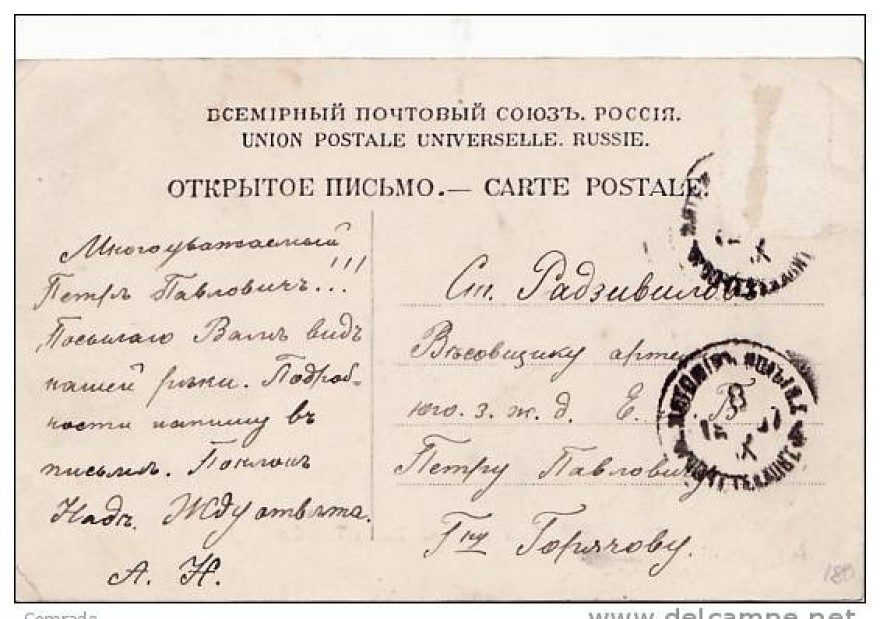 ВСЕМІРНЫЙ ПОЧТОВЫЙ СОЮЗЪ. РОССІЯ.
UNION POSTALE UNIVERSELLE. RUSSIE.
ОТКРЫТОЕ ПИСЬМО.— CARTE POSTALE.
Многоуважаемый
Петръ Павловичъ!!!
Посылаю Вамъ видъ
нашей рѣки. Подроб-
ности напишу въ
письмѣ. Поклонъ
Надѣ. Жду отвѣта.
А. Н.
Ст. Радзивиловъ
Вѣсовщику
юго. з. ж. д. Е. В.
Петру Павловичу
Гну Горячову.
180
Comrade
www.delcampe.net